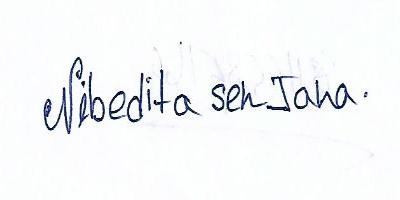 Nibedita sen Jana.